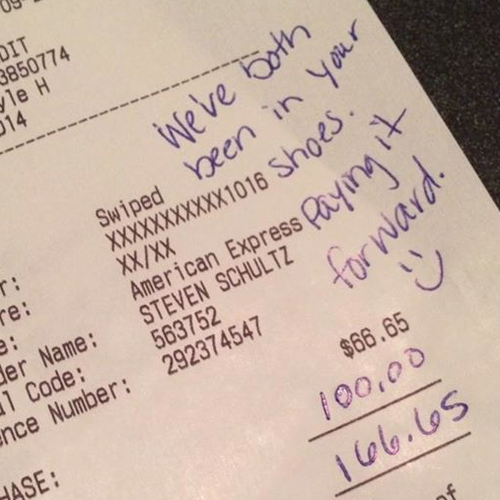 DIT
3850774
yle H
014
We've both
been in your
shoes.
Paying it
forward.
Swiped
XXXXXXXXXXX1016
XX/XX
American Express
STEVEN SCHULTZ
der Name:
563752
l Code:
292374547
nce Number:
$66.65
100.00
166.65
HASE: